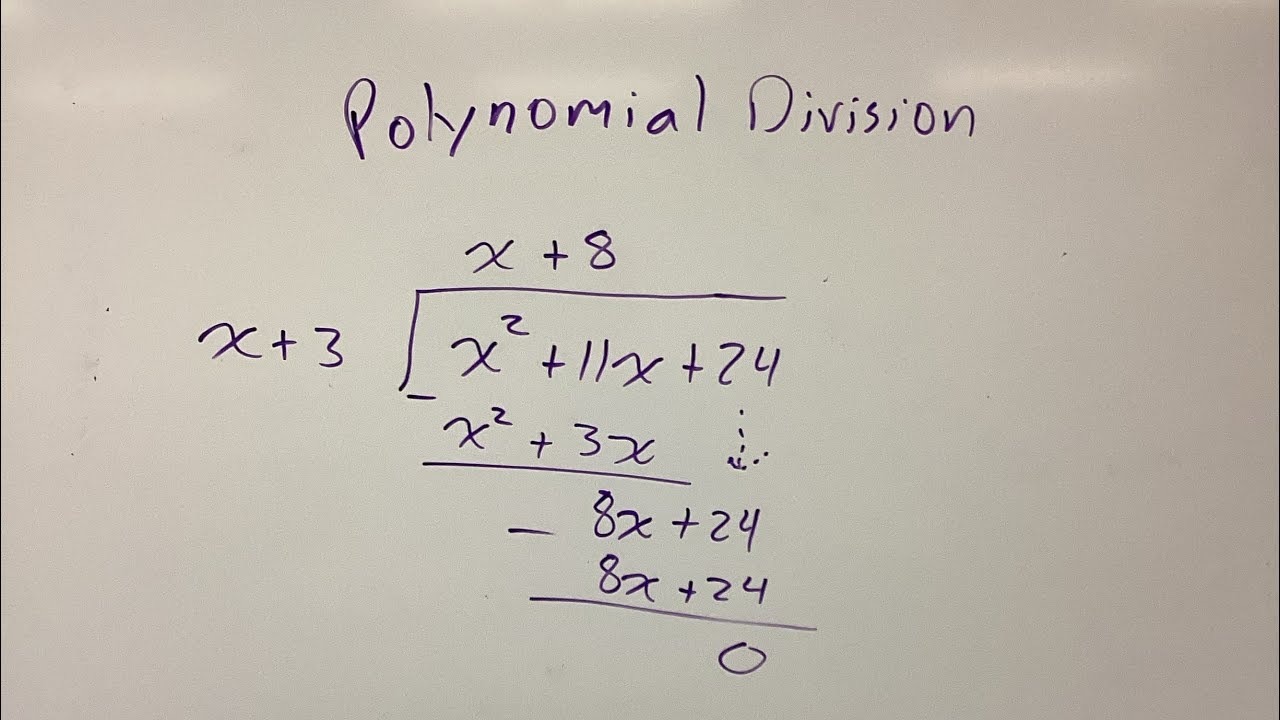 Polynomial Division
x + 8
x + 3 x² + 11x + 24
−
x² + 3x
− 8x + 24
8x + 24
0